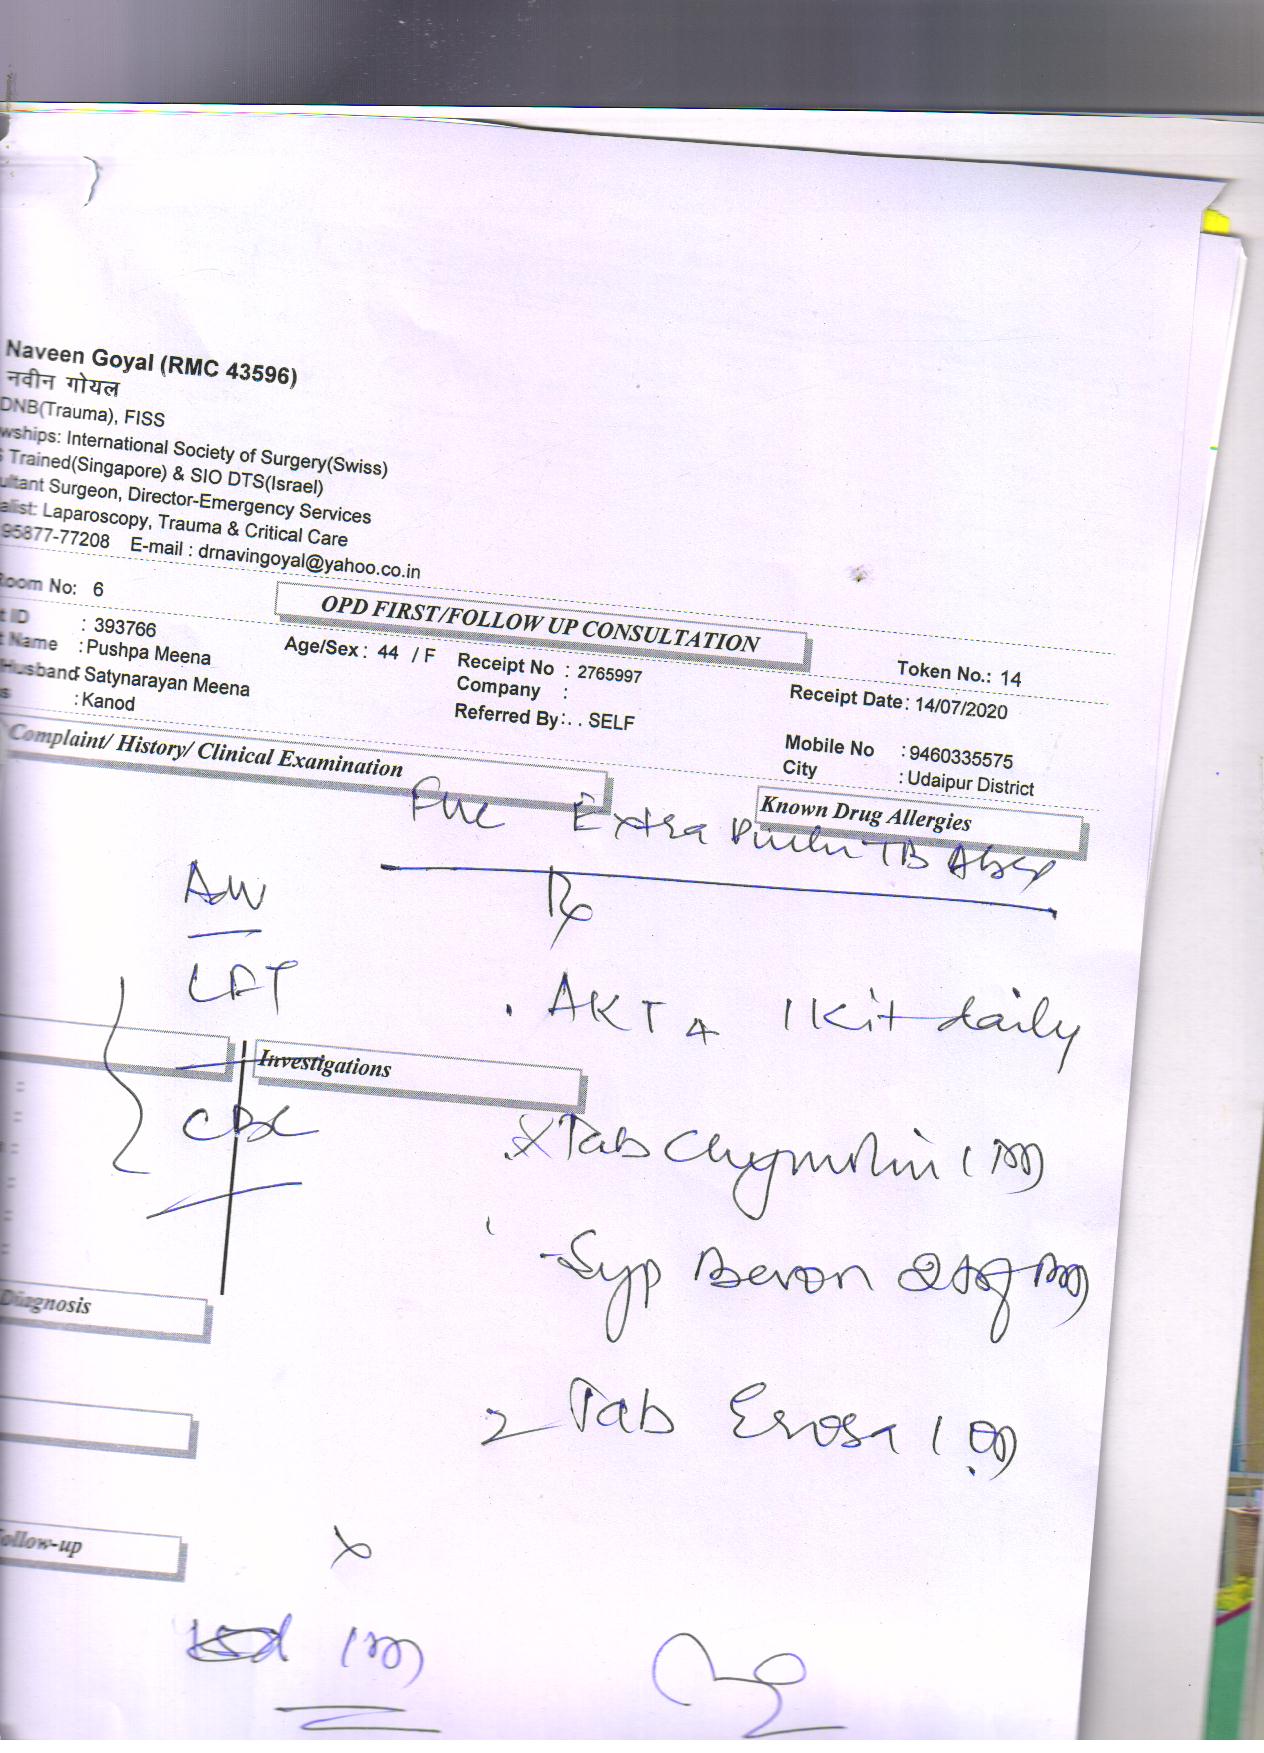 Naveen Goyal (RMC 43596)
नवीन गोयल
DNB(Trauma), FISS
wships: International Society of Surgery(Swiss)
S Trained(Singapore) & SIO DTS(Israel)
ultant Surgeon, Director-Emergency Services
alist: Laparoscopy, Trauma & Critical Care
95877-77208 E-mail : drnavingoyal@yahoo.co.in
Room No: 6
OPD FIRST/FOLLOW UP CONSULTATION
Token No.: 14
t ID : 393766
Age/Sex : 44 / F
Receipt No : 2765997
Receipt Date: 14/07/2020
t Name : Pushpa Meena
Company :
Husband: Satynarayan Meena
Referred By:. . SELF
Mobile No : 9460335575
s : Kanod
City : Udaipur District
Complaint/ History/ Clinical Examination
Known Drug Allergies
Extra TB
Rx
LFT
AKT 4 1 Kit daily
Investigations
CBC
Tab Chymolin 1
Syp Bevon
Diagnosis
Tab 1
ollow-up